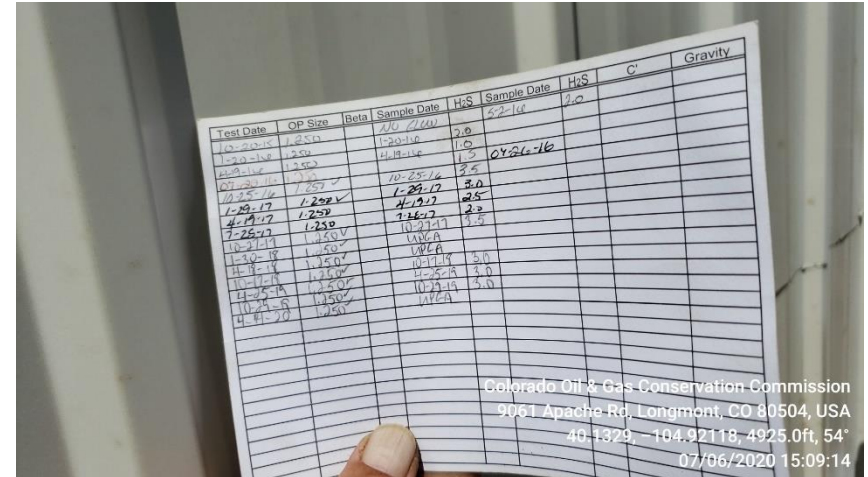 Test Date OP Size Beta Sample Date H2S Sample Date H2S C' Gravity
10-20-15 1.250 NO FLOW 5-2-16 2.0
1-20-16 1.250 1-20-16 2.0
4-19-16 1.250 4-19-16 1.0
07-20-16 1.250 1.5 07-26-16
10-25-16 1.250 ✓ 10-25-16 3.5
1-29-17 1.250 ✓ 1-29-17 3.0
4-19-17 1.250 4-19-17 2.5
7-26-17 1.250 7-26-17 2.0
10-27-17 1.250 ✓ 10-27-17 3.5
1-30-18 1.250 UPGA
4-18-18 1.250 ✓ UPGA
10-17-18 1.250 ✓ 10-17-18 3.0
4-25-19 1.250 ✓ 4-25-19 3.0
10-29-19 1.250 ✓ 10-29-19 3.0
1.250 UPGA
Colorado Oil & Gas Conservation Commission
9061 Apache Rd, Longmont, CO 80504, USA
40.1329, -104.92118, 4925.0ft, 54°
07/06/2020 15:09:14